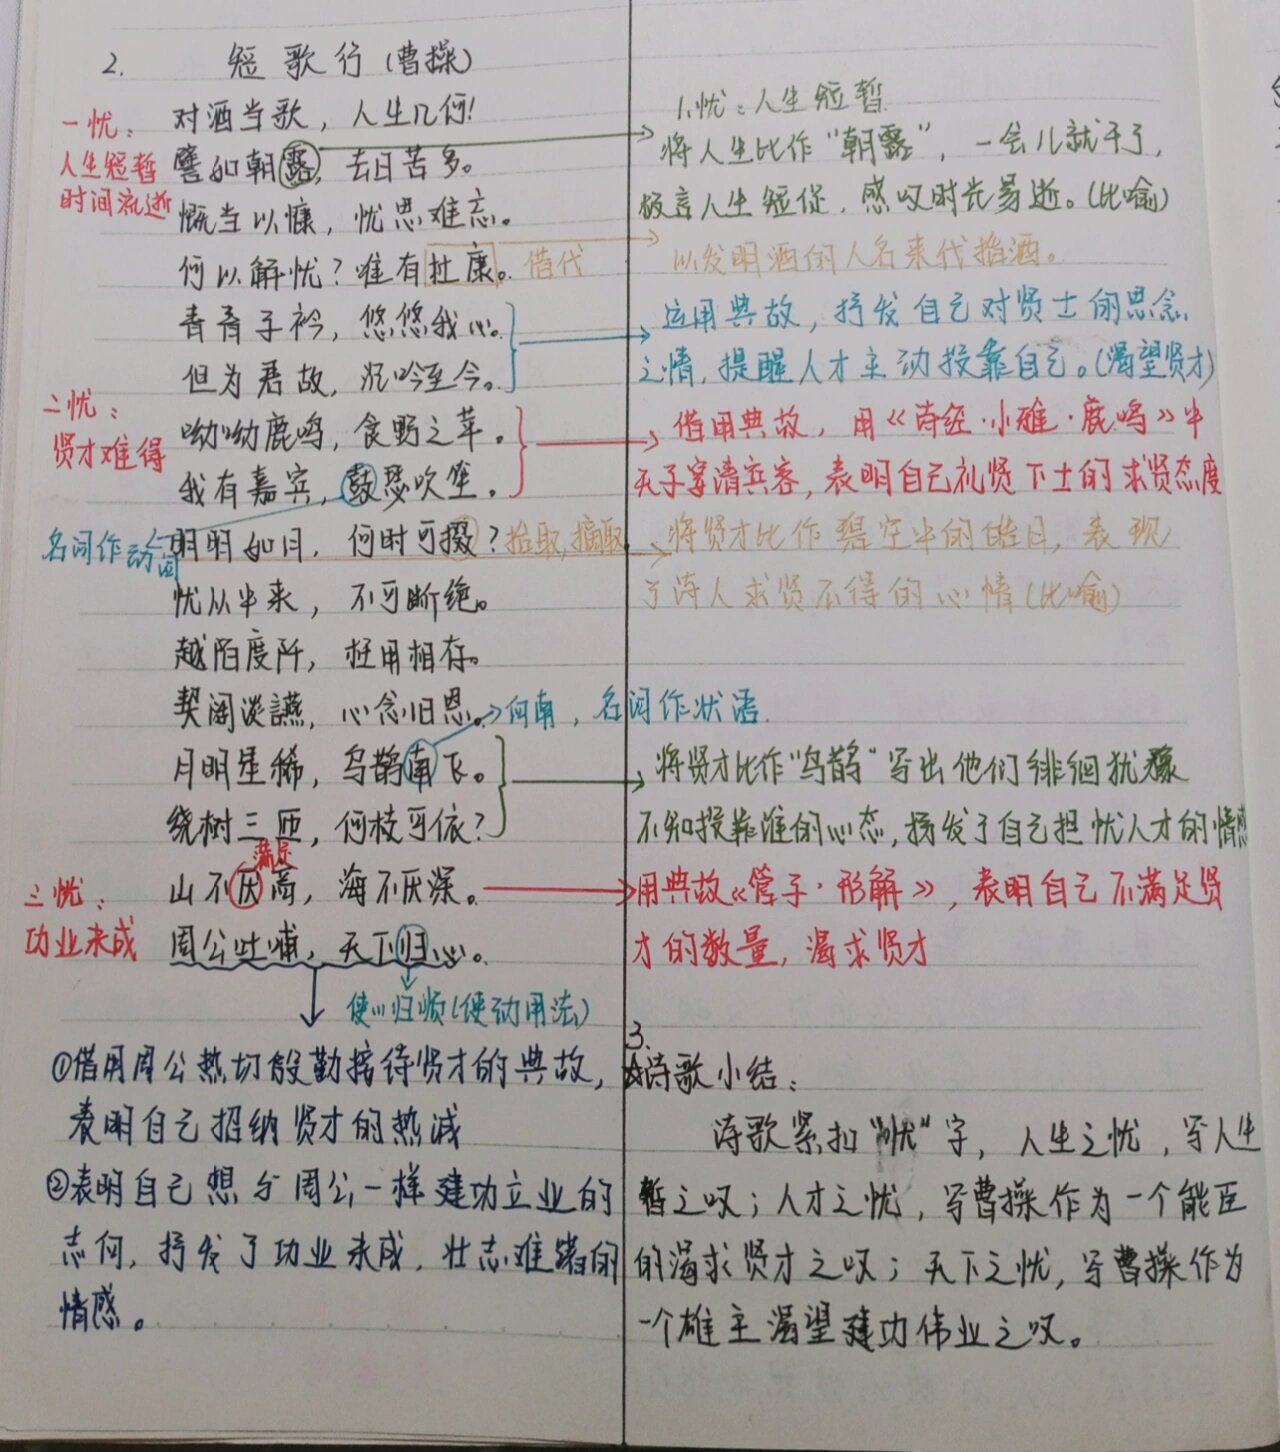 2. 短歌行(曹操)
一忧：
人生短暂
时间流逝
对酒当歌，人生几何！
譬如朝露，去日苦多。
慨当以慷，忧思难忘。
何以解忧？唯有杜康。借代
青青子衿，悠悠我心。
但为君故，沉吟至今。
二忧：
贤才难得
呦呦鹿鸣，食野之苹。
我有嘉宾，鼓瑟吹笙。
名词作动词
明明如月，何时可掇？拾取，摘取
忧从中来，不可断绝。
越陌度阡，枉用相存。
契阔谈讌，心念旧恩。
向南，名词作状语.
月明星稀，乌鹊南飞。
绕树三匝，何枝可依？
满足
三忧：
功业未成
山不厌高，海不厌深。
周公吐哺，天下归心。
使…归顺(使动用法)
①借用周公热切殷勤接待贤才的典故，
表明自己招纳贤才的热诚
②表明自己想与周公一样建功立业的
志向，抒发了功业未成，壮志难酬的
情感。
1.忧：人生短暂
将人生比作"朝露"，一会儿就干了，
极言人生短促，感叹时光易逝。(比喻)
以发明酒的人名来代指酒。
运用典故，抒发自己对贤士的思念
之情，提醒人才主动投靠自己。(渴望贤才)
借用典故，用《诗经·小雅·鹿鸣》中
天子宴请宾客，表明自己礼贤下士的求贤态度
将贤才比作碧空中的皓月，表现
了诗人求贤不得的心情(比喻)
将贤才比作"乌鹊"写出他们徘徊犹豫
不知投靠谁的心态，抒发了自己担忧人才的情感
用典故《管子·形解》，表明自己不满足贤
才的数量，渴求贤才
3.
☆诗歌小结：
诗歌紧扣"忧"字，人生之忧，写人生
暂之叹；人才之忧，写曹操作为一个能臣
的渴求贤才之叹；天下之忧，写曹操作为
一个雄主渴望建功伟业之叹。